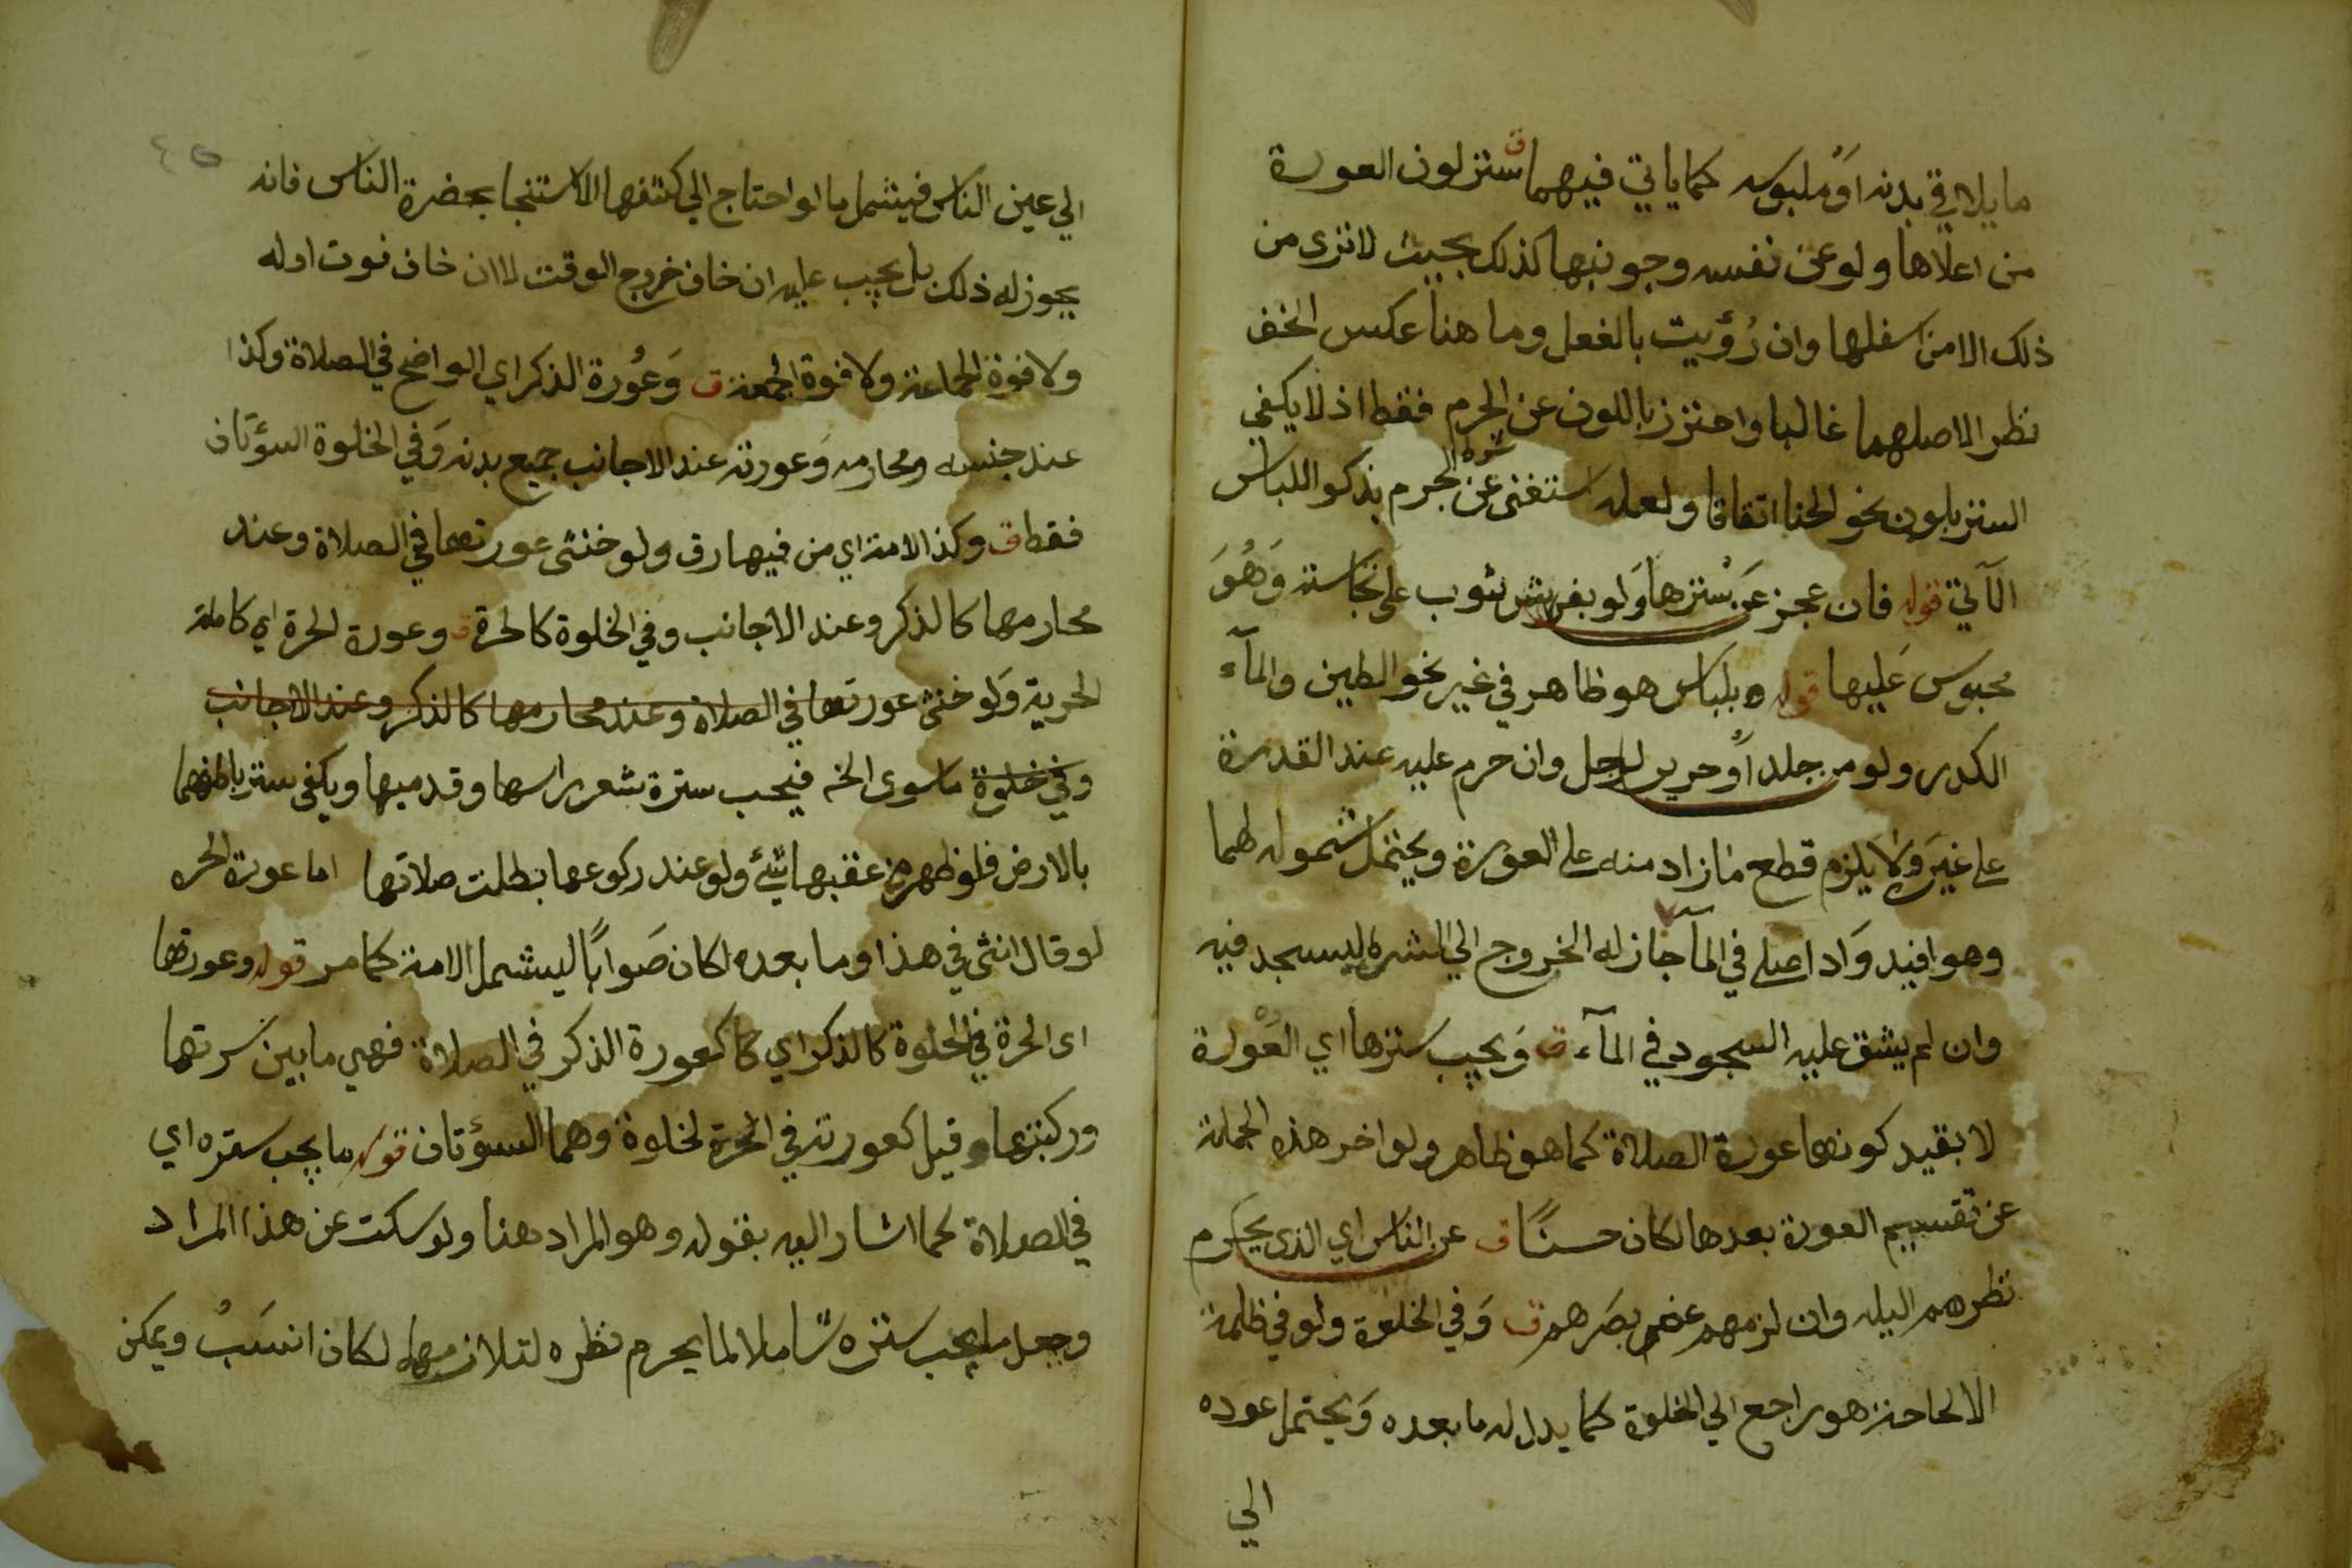 ما يلاقي بدنه او ملبوسه كما ياتي فيهما ق ستر لون العورة
من اعلاها ولو عن نفسه وجوانبها كذلك بحيث لا ترى من
ذلك الا من اسفلها وان رُؤيت بالفعل وما هنا عكس الخف
نظر الاصلهما غالبا واحترز باللون عن الجرم فقط اذ لا يكفي
الستر بلون نحو الحنا اتفاقا ولعله استغنى عن الجرم بذكر اللباس
الآتي قوله فان عجز عن سُترها وَلو بفرش ثوب على نجاسته وَهُوَ
محبوس عَليها قوله بلباس هو ظاهر في غير نحو الطين والمآء
الكدر ولو من جلد اَوْ حرير لرجل وان حرم عليه عند القدرة
على غيره وَلا يلزم قطع ما زاد منه على العورة ويحتمل شموله لهما
وهو افيد وَاذا صلى في المآ جاز له الخروج الى الشره ليسجد فيه
وان لم يشق عليه السجود في المآء ق وَيجب سترها اي العَوْرة
لا بقيد كونها عورة الصلاة كما هو ظاهر ولو اخر هذه الجملة
عن تقسيم العورة بعدها لكان حسنًا ق عن الناس اي الذي يحرم
نظرهم اليه وان لزمهم غض بصَرهم ق وَفي الخلوة ولو في ظلمة
الا لحاجة هو راجع الي الخلوة كما يدل له ما بعده وَيحتمل عوده
الي
٤٥
الي عين الناس فيشمل ما لو احتاج الي كشفها للاستنجا بحضرة الناس فانه
يجوز له ذلك بل يجب عليه ان خاف خروج الوقت لا ان خاف فوت اوله
ولا فوة الجماعة ولا فوة الجمعة ق وَعُورة الذكر اي الواضح في الصلاة وكذا
عند جنسه ومحارمه وَعورته عند الاجانب جميع بدنه وَفي الخلوة السؤتان
فقط ق وكذا الامة اي من فيها رق ولو خنثى عورتها في الصلاة وعند
محارمها كالذكر وعند الاجانب وفي الخلوة كالحرة ق وعورة الحرة اي كاملة
الحرية وَلو خنثى عورتها في الصلاة وعند محارمها كالذكر وعند الاجانب
وفي خلوة ما سوى الخ فيجب سترة شعر راسها وقدميها ويكفي ستر باطنهما
بالارض فلو ظهر من عقبها شئ ولو عند ركوعها بطلت صلاتها اما عورة الحره
لو قال انثى في هذا وما بعده لكان صَوابًا ليشمل الامة كما مر قوله وعورتها
اى الحرة في الخلوة كالذكر اي كعورة الذكر في الصلاة فهي ما بين سرتها
وركبتها وقيل كعورته في الحرة لخلوة وهما السؤتان قوله ما يجب ستره اي
في الصلاة كما اشار اليه بقوله وهو المراد هنا ولو سكت عن هذا المراد
وجعل ما يجب ستره شاملا لما يحرم نظره لتلازمهما لكان انسَبُ ويمكن